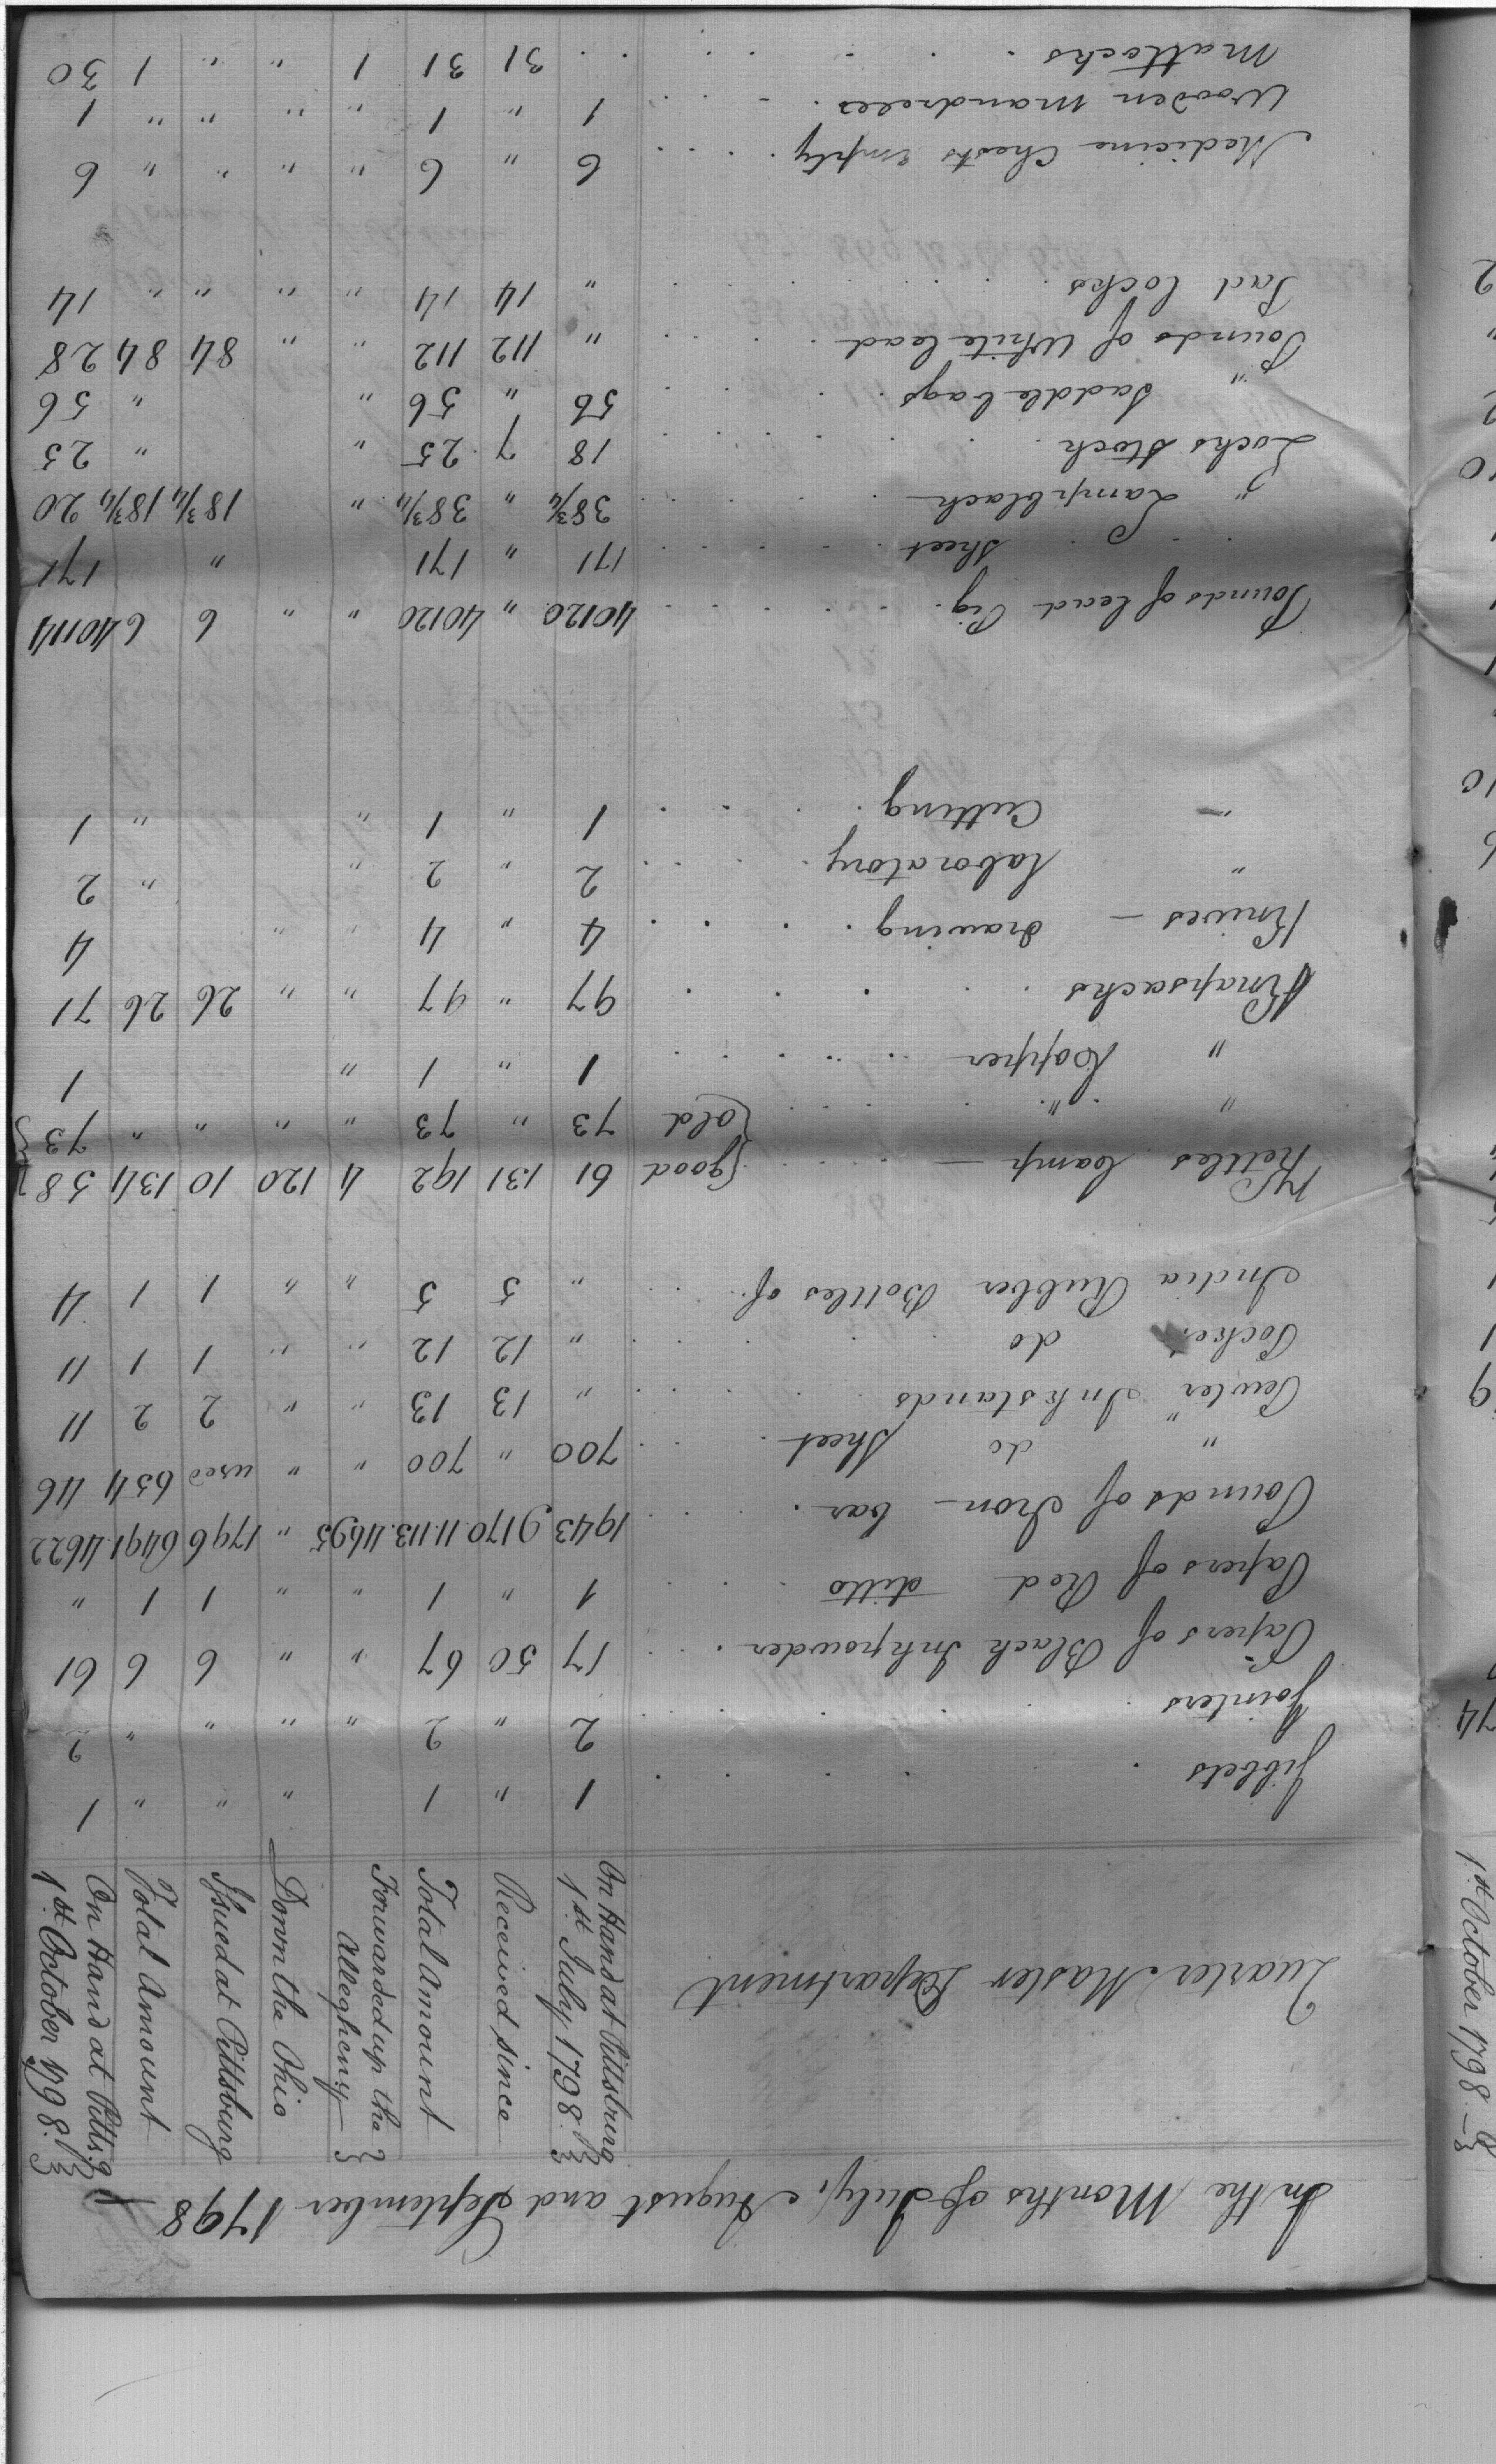 In the Months of July, August and September 1798
Quarter Master Department
On Hand at Pittsburg 1st July 1798.
Received since
Total Amount
Forwarded up the Allegheny
Down the Ohio
Issued at Pittsburg
Total Amount
On Hand at Pittsg. 1st October 1798.
Jibbets . . . . 1 " 1 " " " 1
Jointers . . . . 2 " 2 " " " " 2
Papers of Black Inkpowder . . 17 50 67 " " 6 6 61
Papers of Red ditto . . . 1 " 1 " " 1 1 "
Pounds of Iron - bar . . . . 1943 9170 11.113 4695 " 1796 6491 4622
" do Sheet . . . 700 " 700 " " used 654 46
Pewter Inkstands . . . . " 13 13 " " 2 2 11
Pocket " do . . . . " 12 12 " " 1 1 11
India Rubber Bottles of . . . " 5 5 " " 1 1 4
Kettles Camp - . . . {good 61 131 192 4 120 10 134 58}
" " . . . {old 73 " 73 " " " " 73}
" Copper - . . . . 1 " 1 " 1
Knapsacks . . . . 97 " 97 " " 26 26 71
Knives - drawing . . . . 4 " 4 " " 4
" laboratory . . . . 2 " 2 " " 2
" Cutting . . . . 1 " 1 " " 1
Pounds of lead Pig . . . . 40120 " 40120 " " 6 6 40114
" " Sheet . . . . 171 " 171 " 171
" Lampblack . . . . 38¾ " 38¾ " 18¾ 18¾ 20
Locks Stock . . . . 18 7 25 " " 25
" Saddle bags . . . . 56 " 56 " " 56
Pounds of White lead . . . " 112 112 " " 84 84 28
Pad locks . . . . " 14 14 " " " " 14
Medicine Chests empty . . . 6 " 6 " " " " 6
Wooden Mandrels . . . 1 " 1 " " " " 1
Mattocks . . . . . 31 31 1 " " 1 30
1st October 1798.
74
9
1
10
10
2